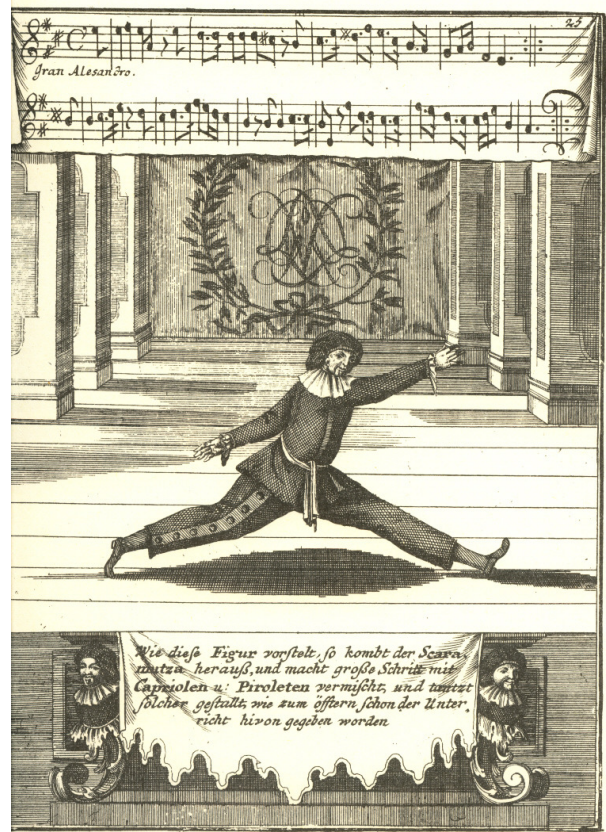 25
Gran Alesandro.
Wie diese Figur vorstelt, so kombt der Scara,
mutza herauß, und macht große Schritt mit
Capriolen u: Piroleten vermischt, und tantzt
solcher gestallt, wie zum öfftern schon der Unter,
richt hivon gegeben worden